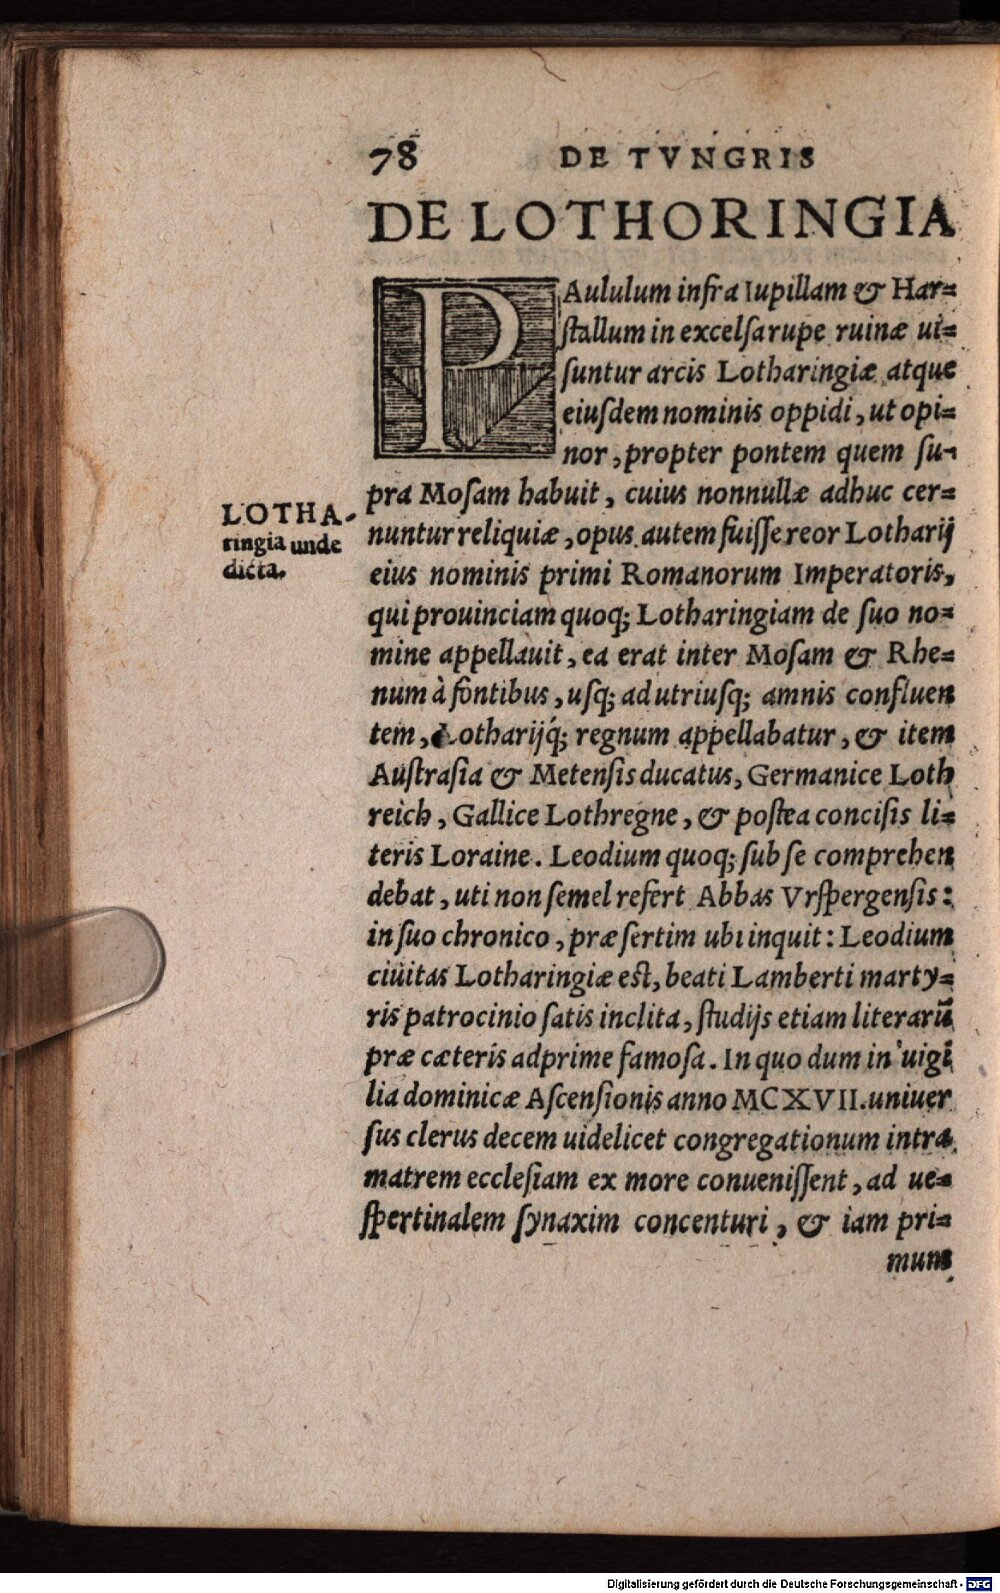 78 DE TVNGRIS
DE LOTHORINGIA
PAululum infra Iupillam & Har=
ſtallum in excelſa rupe ruinæ ui=
ſuntur arcis Lotharingiæ atque
eiuſdem nominis oppidi, ut opi=
nor, propter pontem quem ſu=
pra Moſam habuit, cuius nonnullæ adhuc cer=
nuntur reliquiæ, opus autem fuiſſe reor Lotharij
eius nominis primi Romanorum Imperatoris,
qui prouinciam quoq; Lotharingiam de ſuo no=
mine appellauit, ea erat inter Moſam & Rhe=
num à fontibus, uſq; ad utriuſq; amnis confluen
tem, Lotharijq́; regnum appellabatur, & item
Auſtraſia & Metenſis ducatus, Germanice Loth
reich, Gallice Lothregne, & poſtea conciſis li=
teris Loraine. Leodium quoq; ſub ſe comprehen
debat, uti non ſemel refert Abbas Vrſpergenſis:
in ſuo chronico, præſertim ubi inquit: Leodium
ciuitas Lotharingiæ eſt, beati Lamberti marty=
ris patrocinio ſatis inclita, ſtudijs etiam literarū
præ cæteris adprime famoſa. In quo dum in uigi
lia dominicæ Aſcenſionis anno MCXVII. uniuer
ſus clerus decem uidelicet congregationum intra
matrem eccleſiam ex more conueniſſent, ad ue=
ſpertinalem ſynaxim concenturi, & iam pri=
mum
LOTHA-
ringia unde
dicta.
Digitalisierung gefördert durch die Deutsche Forschungsgemeinschaft - DFG